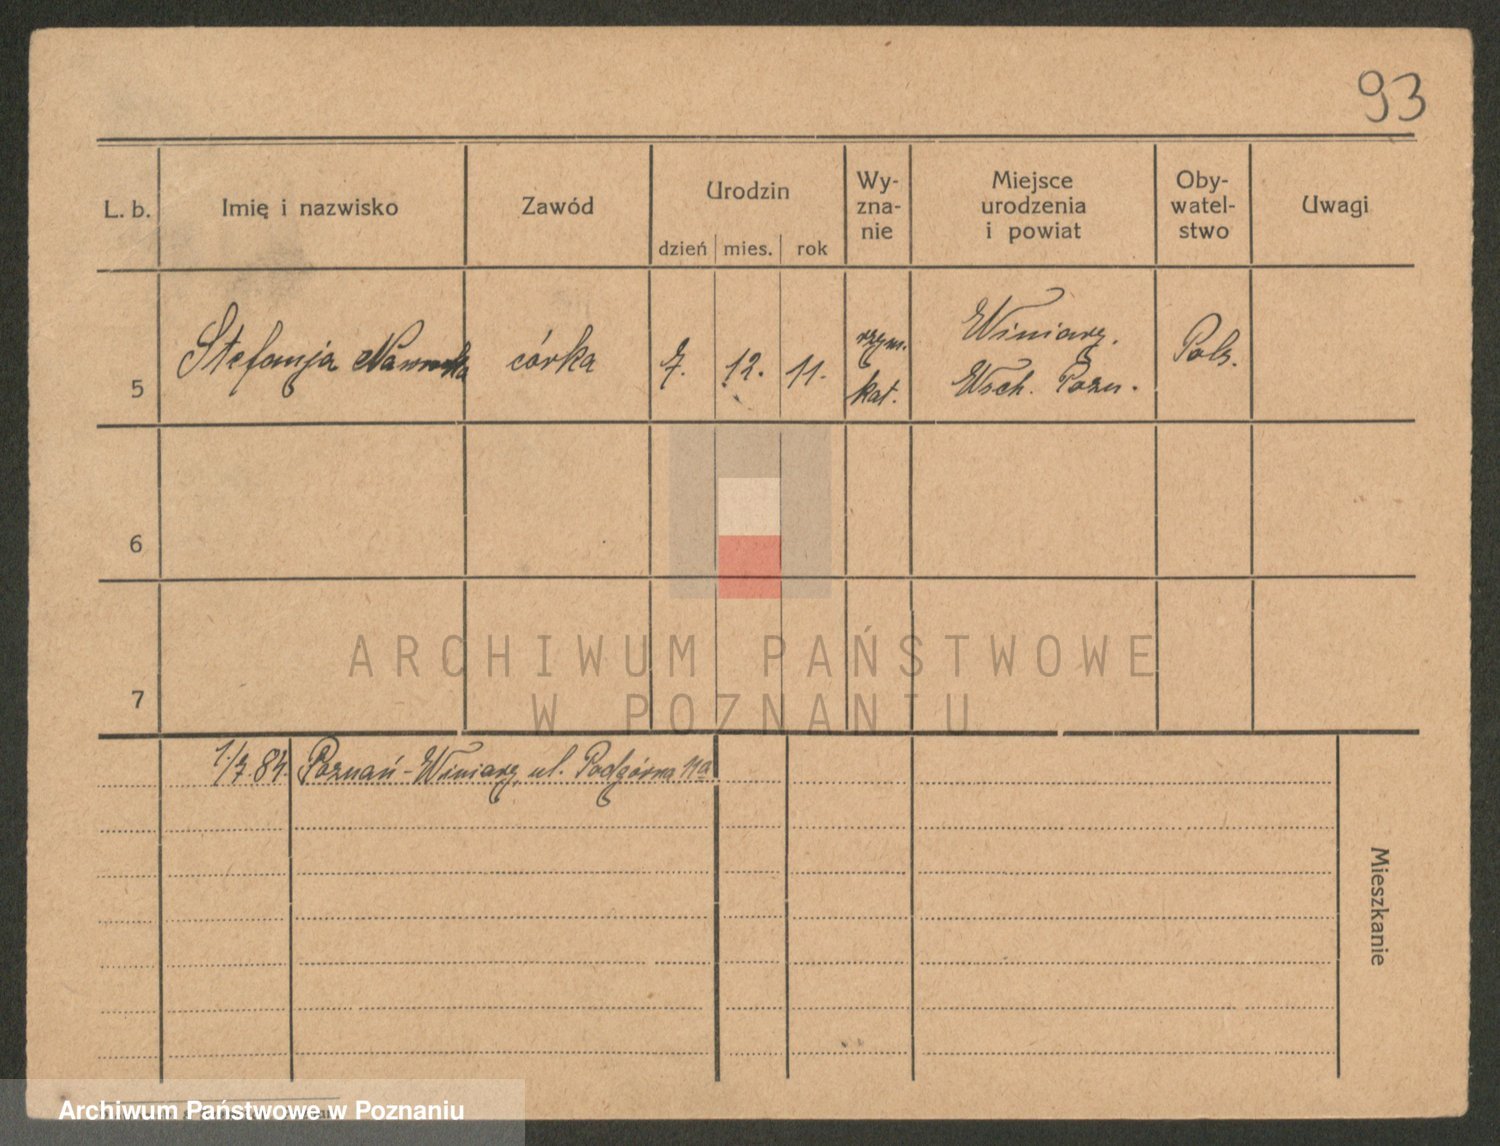 93
L. b. Imię i nazwisko Zawód Urodzin Wy- Miejsce Oby- Uwagi
zna- urodzenia watel-
nie i powiat stwo
dzień mies. rok
5 Stefanja córka 7. 12. 11. rzym. Winiary.
kat. Wsch. Pozn. Pols.
6
7
ARCHIWUM PAŃSTWOWE
W POZNANIU
1./7. Poznań-Winiary, ul. Podgórna 11a
Mieszkanie
Archiwum Państwowe w Poznaniu